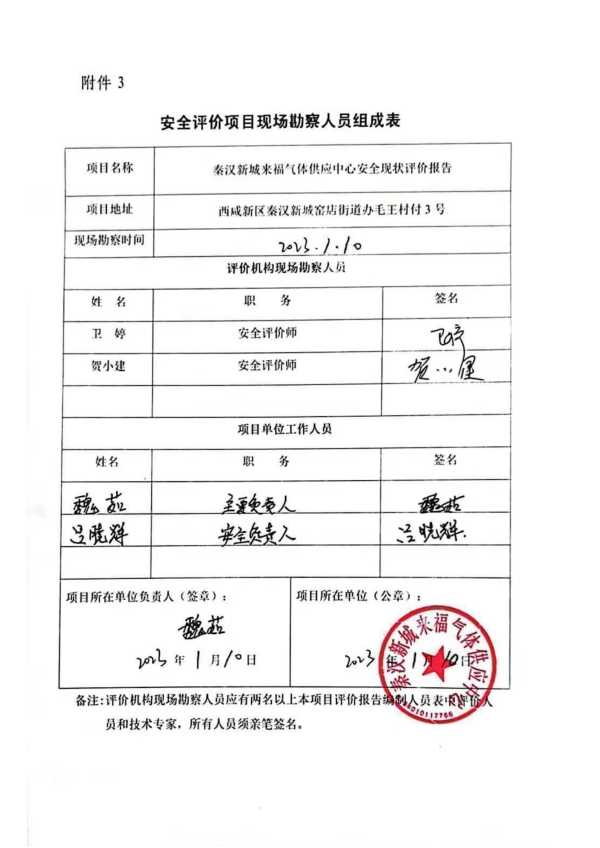 附件 3
安全评价项目现场勘察人员组成表
项目名称 秦汉新城来福气体供应中心安全现状评价报告
项目地址 西咸新区秦汉新城窑店街道办毛王村付3号
现场勘察时间 2023.1.10
评价机构现场勘察人员
姓 名 职 务 签名
卫 婷 安全评价师 卫婷
贺小建 安全评价师 贺小建
项目单位工作人员
姓名 职 务 签名
魏茹 主要负责人 魏茹
吕晓辉 安全负责人 吕晓辉
项目所在单位负责人（签章）： 项目所在单位（公章）：
魏茹
2023 年 1 月 10 日 2023 年 1 月 10 日
秦汉新城来福气体供应中心
备注:评价机构现场勘察人员应有两名以上本项目评价报告编制人员表中评价人
员和技术专家，所有人员须亲笔签名。